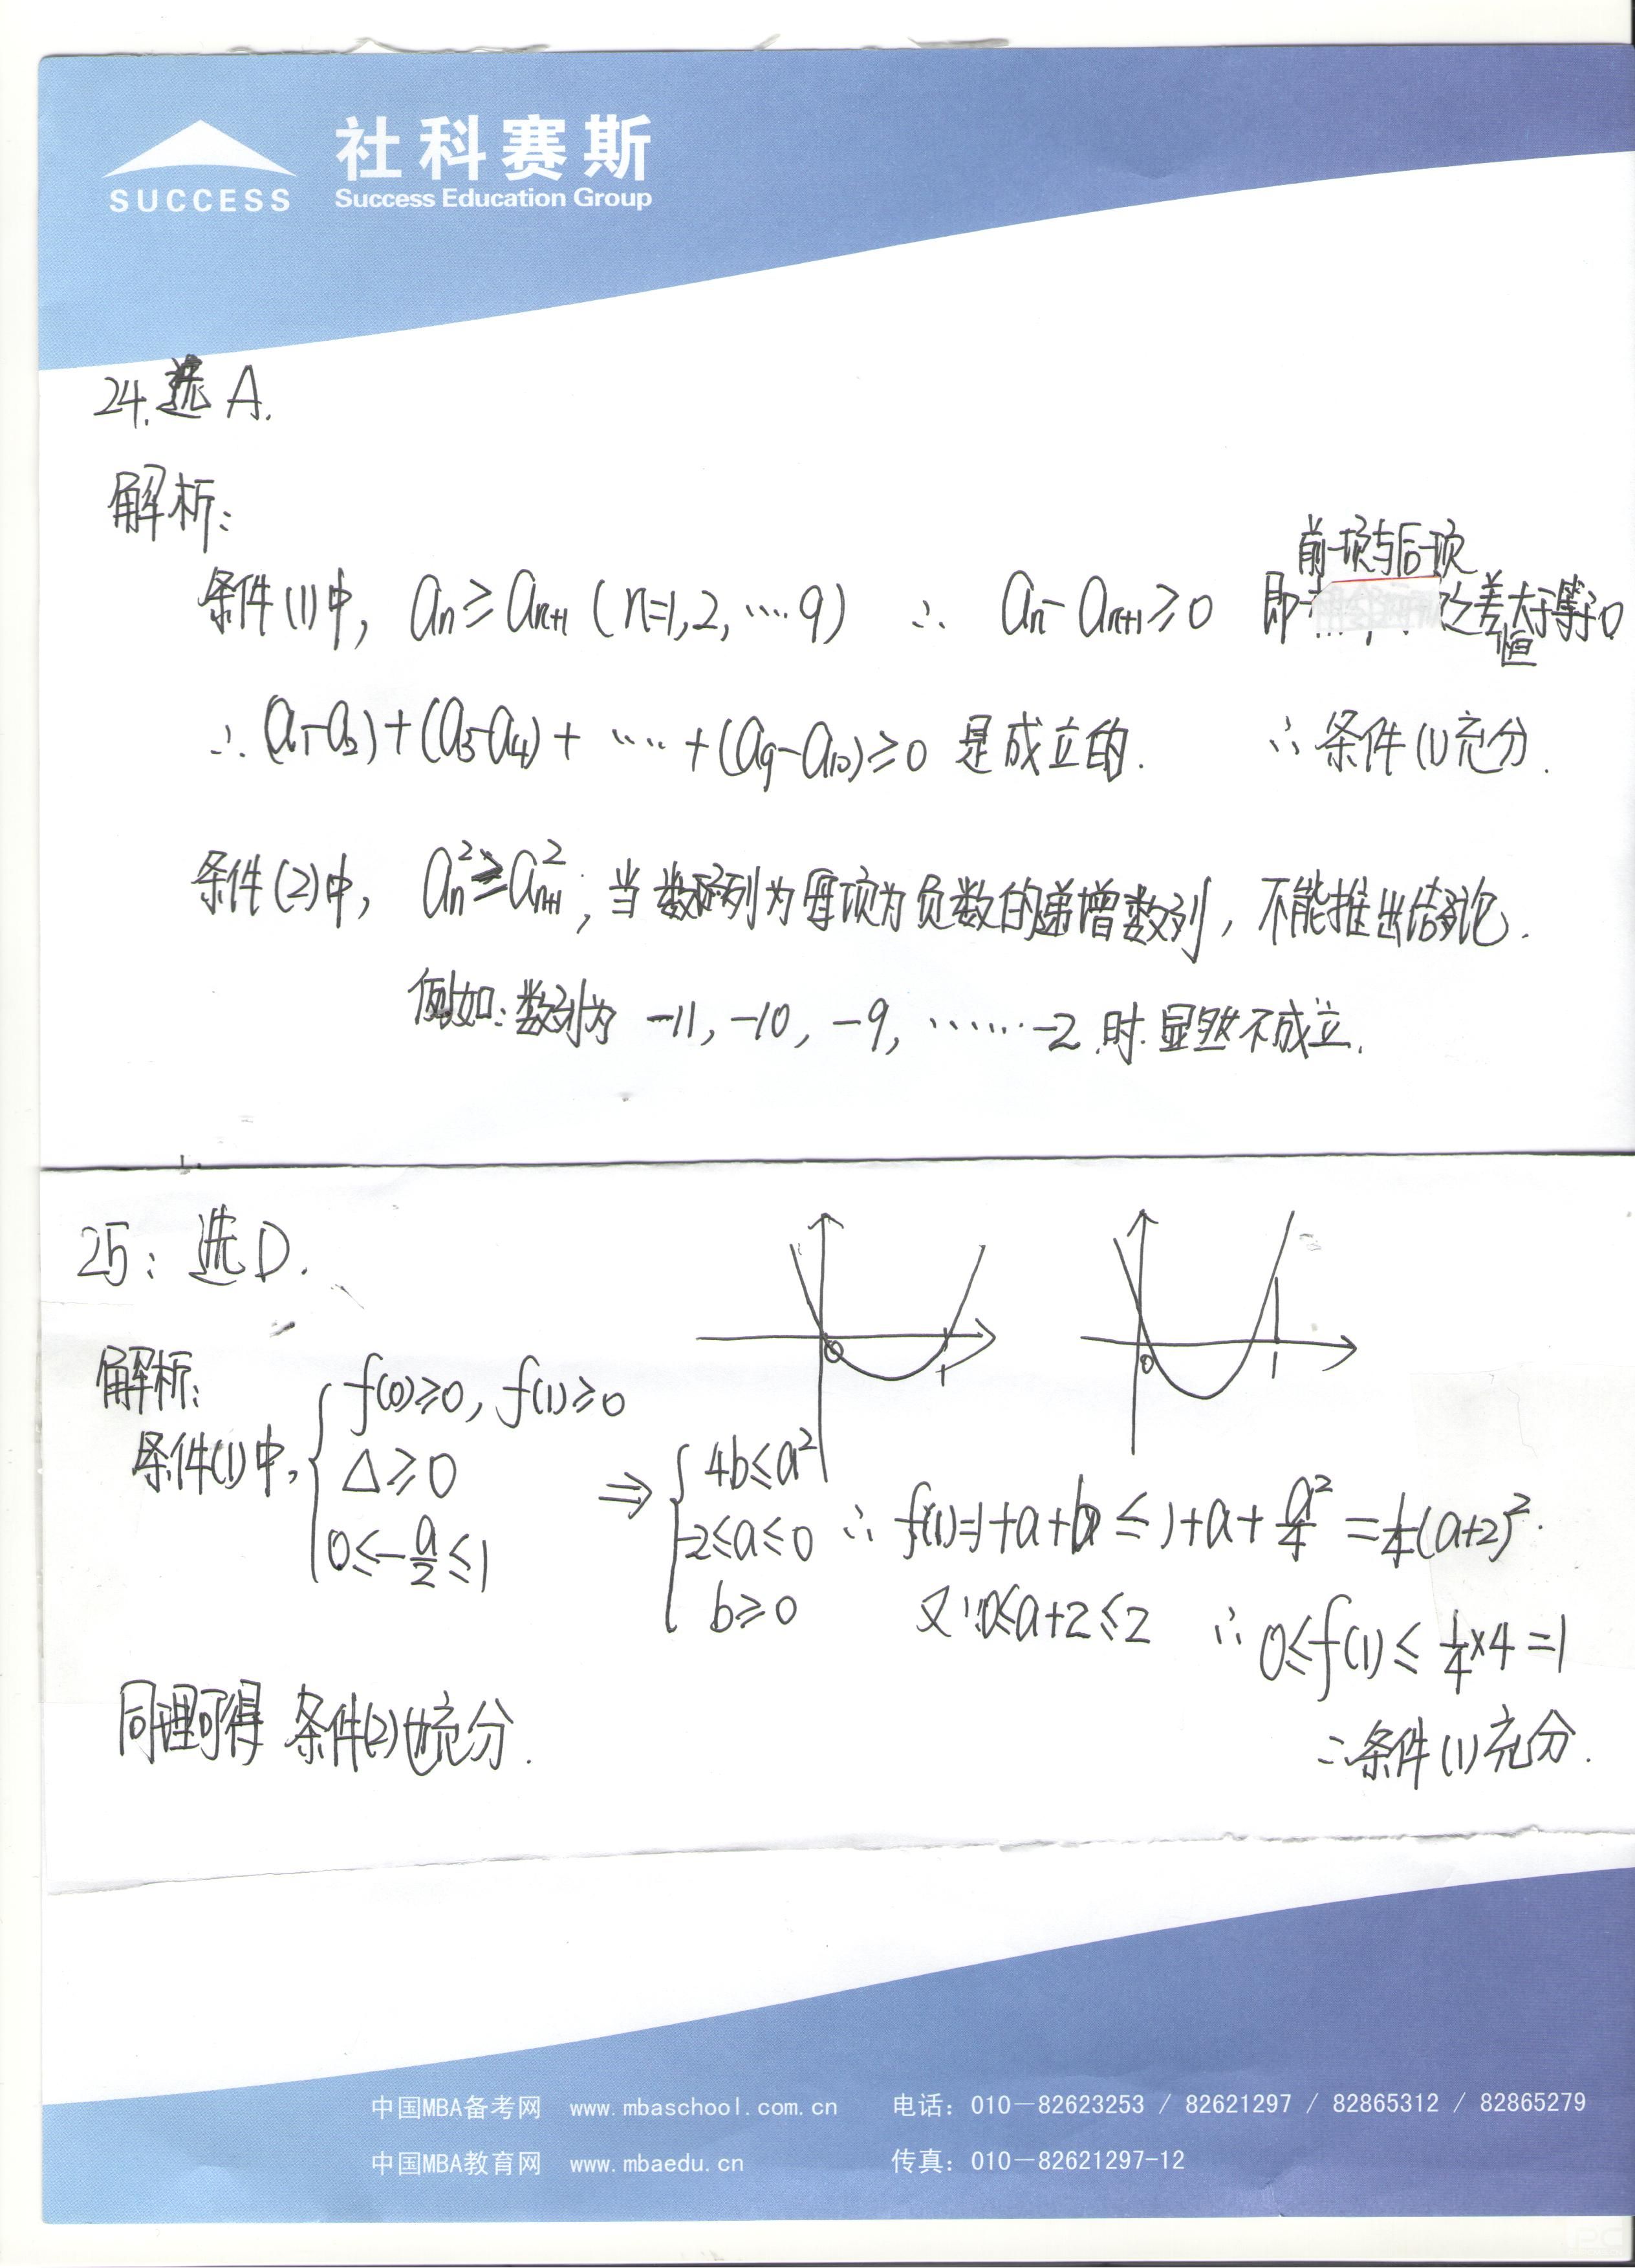 社科赛斯
SUCCESS
Success Education Group
24. 选 A.
解析:
前项与后项
条件(1)中, aₙ ≥ aₙ₊₁ (n=1,2,⋯⋯9) ∴ aₙ - aₙ₊₁ ≥ 0 即 之差大于等于0
恒
∴ (a₁-a₂)+(a₃-a₄)+ ⋯⋯ +(a₉-a₁₀)≥0 是成立的. ∴ 条件(1)充分.
条件(2)中, aₙ² ≥ aₙ₊₁²; 当数列为每项为负数的递增数列, 不能推出结论.
例如: 数列为 -11, -10, -9, ⋯⋯ -2 时 显然不成立.
25: 选 D.
0 1 0 1
解析:
条件(1)中, { f(0)≥0, f(1)≥0
Δ≥0
0≤-a/2≤1
⇒ { 4b≤a²
-2≤a≤0
b≥0
∴ f(1)=1+a+b ≤ 1+a+a²/4 = 1/4(a+2)².
又∵0≤a+2≤2 ∴ 0≤f(1)≤ 1/4×4=1
∴条件(1)充分.
同理可得 条件(2)也充分.
中国MBA备考网 www.mbaschool.com.cn 电话: 010-82623253 / 82621297 / 82865312 / 82865279
中国MBA教育网 www.mbaedu.cn 传真: 010-82621297-12